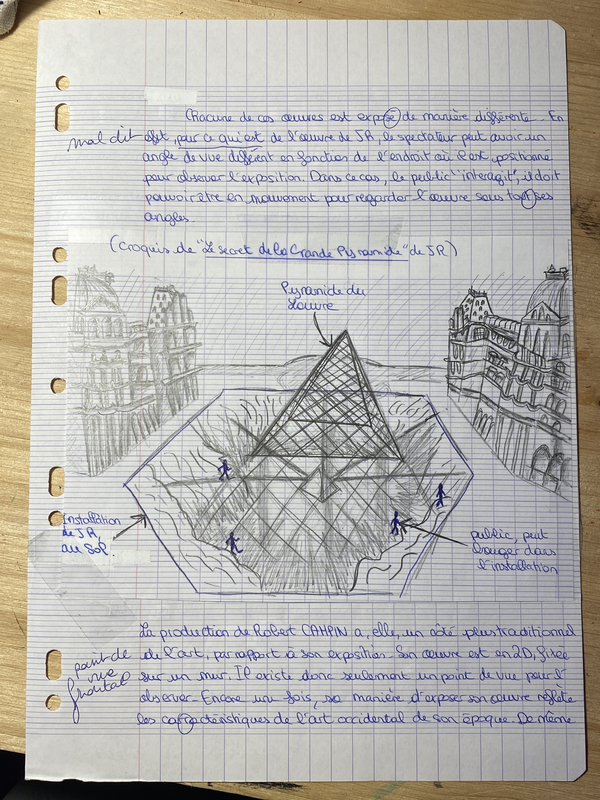 Chacune de ces œuvres est exposé de manière différente. En
mal dit
effet, pour ce qui est de l'œuvre de JR, le spectateur peut avoir un
angle de vue différent en fonction de l'endroit où il est positionné
pour observer l'exposition. Dans ce cas, le public "interagit", il doit
pouvoir être en mouvement pour regarder l'œuvre sous tout ses
angles.
(Croquis de "Le secret de la Grande Pyramide" de JR)
Pyramide du
Louvre
Installation
de JR,
au Sol.
public, peut
bouger dans
l'installation
La production de Robert CAMPIN a, elle, un côté plus traditionnel
de l'art, par rapport à son exposition. Son œuvre est en 2D, fixée
point de
vue
frontal
sur un mur. Il existe donc seulement un point de vue pour l'
observer. Encore une fois, sa manière d'exposer son œuvre reflète
les caractéristiques de l'art occidental de son époque. De même